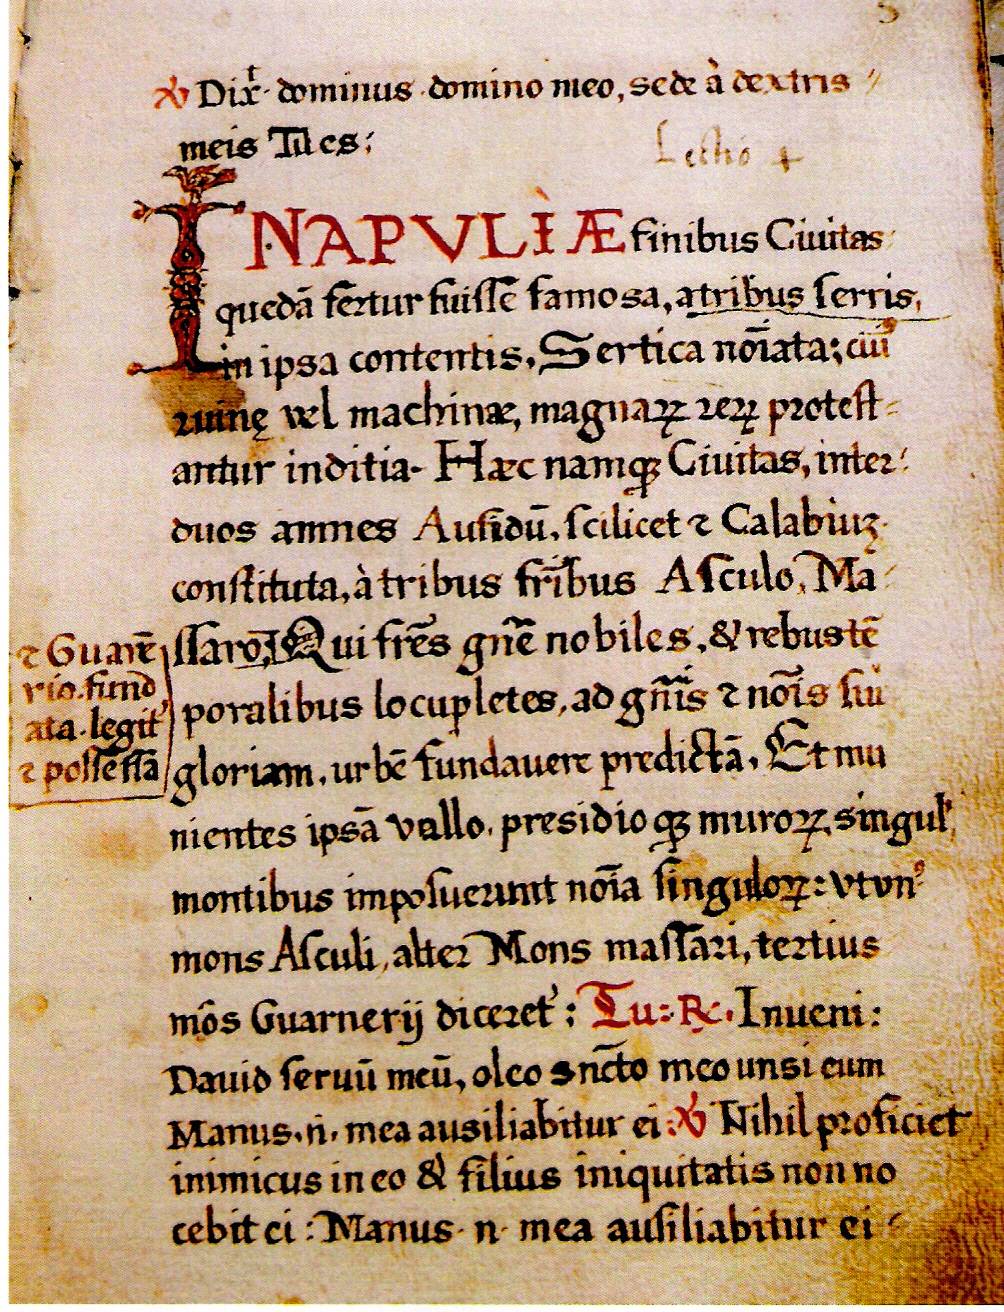 ℣ Dixᵗ dominus domino meo, sede à dextris
meis Tu es;
Lectio
INAPVLIÆ finibus Ciuitas
quedā fertur fuisse famosa, atribus serris,
in ipsa contentis, Sertica noīata; cui
ruinę vel machinæ, magnaꝝ reꝝ protest
antur inditia. Hæc namqꝫ Ciuitas, inter
duos amnes Aufidū, scilicet ⁊ Calabiuꝫ
constituta, à tribus fribus Asculo, Ma
ssaro, Qui fres gn̄e nobiles, & rebus tē
⁊ Guarē
rio. fund
ata. legit᾽
⁊ possessā
poralibus locupletes, ad gn̄is ⁊ noīs sui
gloriam, urbē fundauere predictā. Et mu
nientes ipsā vallo, presidioqꝫ muroꝝ, singul᾽
montibus imposuerunt noīa singuloꝝ: vt vnꝰ
mons Asculi, alter Mons massari, tertius
mōs Guarnerij diceret᾽; Tu: ℞. Inueni:
Dauid seruū meū, oleo sn̄cto meo unsi eum
Manus. n. mea ausiliabitur ei: ℣ Nihil proficiet
inimicus in eo & filius iniquitatis non no
cebit ei: Manus. n. mea ausiliabitur ei